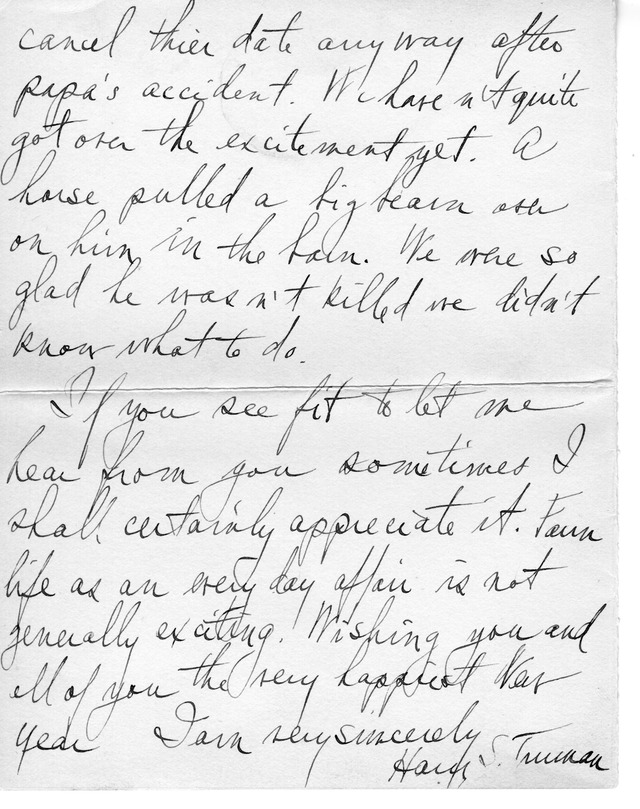 cancel thier date anyway after
papa's accident. We haven't quite
got over the excitement yet. A
horse pulled a big beam over
on him in the barn. We were so
glad he wasn't killed we didn't
know what to do.
If you see fit to let me
hear from you sometimes I
shall certainly appreciate it. Farm
life as an everyday affair is not
generally exciting. Wishing you and
all of you the very happiest New
Year I am very sincerely
Harry S. Truman